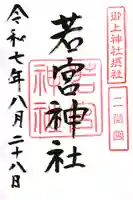 御上神社摂社
二箇國
若宮神社
令和七年八月二十八日